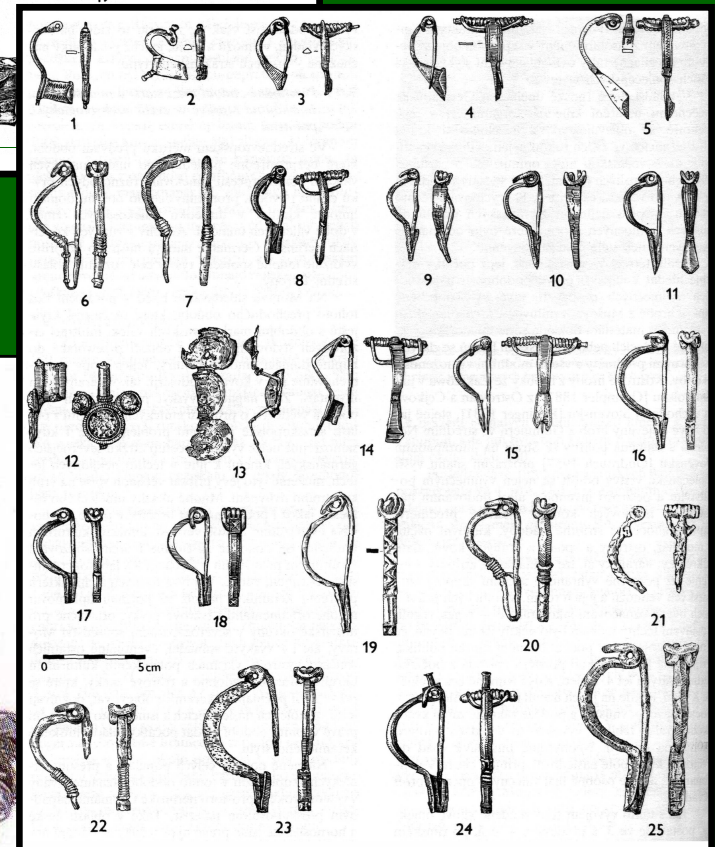 1 2 3 4 5
6 7 8 9 10 11
12 13 14 15 16
17 18 19 20 21
0 5 cm
22 23 24 25